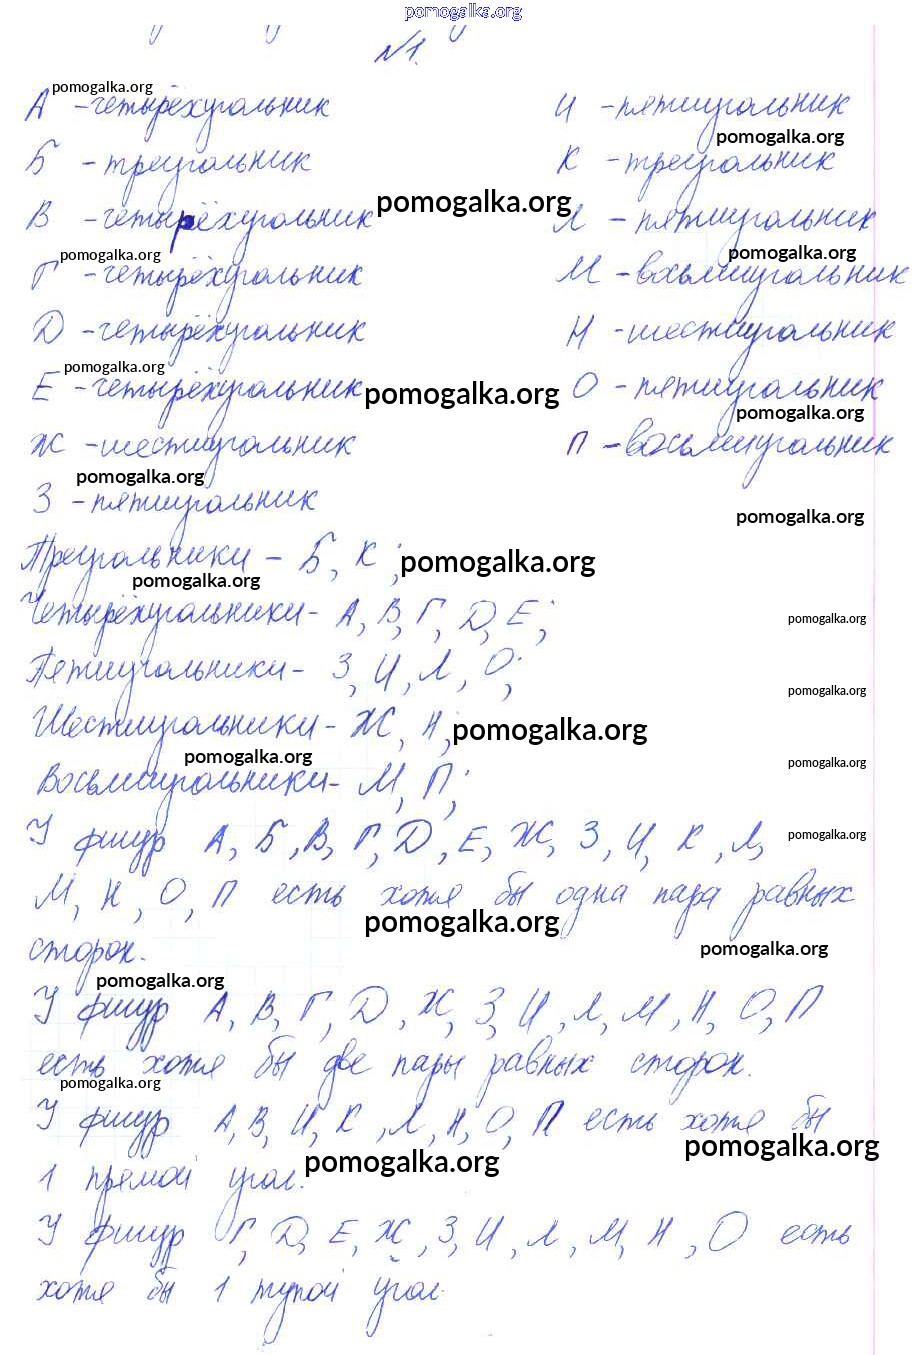 pomogalka.org
№1.
pomogalka.org
А - четырёхугольник
И - пятиугольник
pomogalka.org
Б - треугольник
К - треугольник
pomogalka.org
В - четырёхугольник
Л - пятиугольник
pomogalka.org
pomogalka.org
Г - четырёхугольник
М - восьмиугольник
Д - четырёхугольник
Н - шестиугольник
pomogalka.org
Е - четырёхугольник
pomogalka.org
О - пятиугольник
pomogalka.org
Ж - шестиугольник
П - восьмиугольник
pomogalka.org
З - пятиугольник
pomogalka.org
Треугольники - Б, К;
pomogalka.org
pomogalka.org
Четырёхугольники - А, В, Г, Д, Е;
pomogalka.org
Пятиугольники - З, И, Л, О;
pomogalka.org
Шестиугольники - Ж, Н;
pomogalka.org
pomogalka.org
pomogalka.org
Восьмиугольники - М, П;
У фигур А, Б, В, Г, Д, Е, Ж, З, И, К, Л,
pomogalka.org
М, Н, О, П есть хотя бы одна пара равных
pomogalka.org
сторон.
pomogalka.org
pomogalka.org
У фигур А, В, Г, Д, Ж, З, И, Л, М, Н, О, П
есть хотя бы две пары равных сторон.
pomogalka.org
У фигур А, В, И, К, Л, Н, О, П есть хотя бы
pomogalka.org
pomogalka.org
1 прямой угол.
У фигур Г, Д, Е, Ж, З, И, Л, М, Н, О есть
хотя бы 1 тупой угол